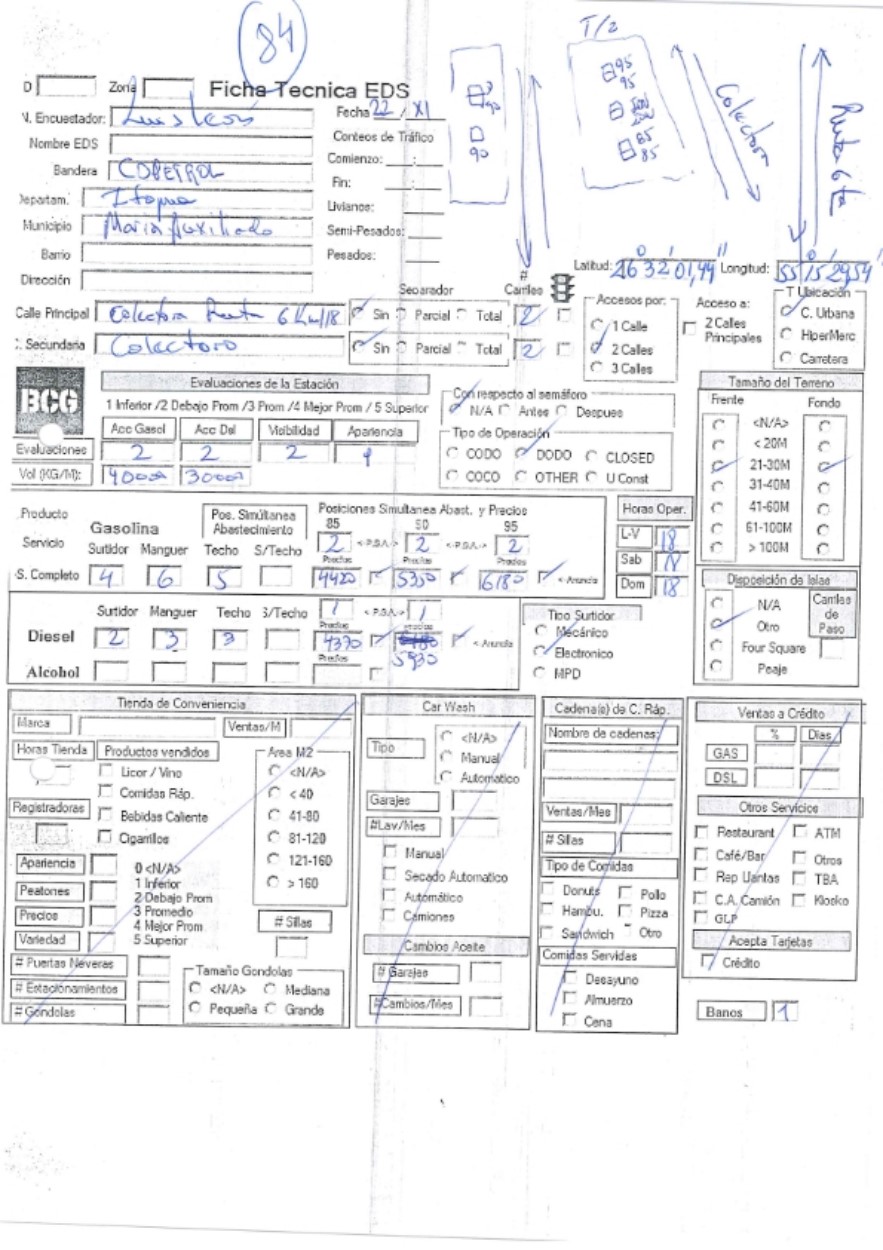 84
T/2
D Zona Ficha Tecnica EDS
N. Encuestador: Luis Fecha 22 / XI
Nombre EDS Conteos de Tráfico
Bandera COPETROL Comienzo: :
Departam. Itapua Fin: :
Livianos:
Municipio Maria Auxiliado Semi-Pesados:
Barrio Pesados:
Dirección
90
90
95
95
85
85
Colectora
Ruta 6ta
Latitud: 26° 32' 01,44" Longitud: 55° 15' 29,54"
Calle Principal Colectora Ruta 6 Km/18 Separador Sin Parcial Total # Carriles 2
C. Secundaria Colectora Sin Parcial Total 2
Accesos por:
1 Calle
2 Calles
3 Calles
Acceso a:
2 Calles Principales
T Ubicación
C. Urbana
HiperMerc
Carretera
BCG
Evaluaciones de la Estación
1 Inferior /2 Debajo Prom /3 Prom /4 Mejor Prom / 5 Superior
Acc Gasol Acc Dsl Visibilidad Apariencia
Evaluaciones 2 2 2 1
Vol (KG/M): 40000 30000
Con respecto al semáforo
N/A Antes Despues
Tipo de Operación
CODO DODO CLOSED
COCO OTHER U Const
Tamaño del Terreno
Frente Fondo
<N/A>
< 20M
21-30M
31-40M
41-60M
61-100M
> 100M
Producto Gasolina Pos. Simúltanea Abastecimiento
Posiciones Simultanea Abast. y Precios
85 90 95
Servicio Surtidor Manguer Techo S/Techo
2 <-P.S.A.-> 2 <-P.S.A.-> 2
Precios Precios Precios
S. Completo 4 6 5 4420 5350 6180 < Anuncia
Horas Oper.
L-V 18
Sab
Dom 18
Disposición de Islas
N/A
Otro
Four Square
Peaje
Carriles de Paso
Surtidor Manguer Techo S/Techo 1 <-P.S.A.-> 1
Precios precios
Diesel 2 3 3 4370 5930 < Anuncia
Precios
Alcohol
Tipo Surtidor
Mecánico
Electronico
MPD
Tienda de Conveniencia
Marca Ventas/M
Horas Tienda Productos vendidos
Licor / Vino
Comidas Ráp.
Registradoras Bebidas Caliente
Cigarrillos
Area M2
<N/A>
< 40
41-80
81-120
121-160
> 160
Apariencia 0 <N/A>
1 Inferior
Peatones 2 Debajo Prom
Precios 3 Promedio
4 Mejor Prom
Variedad 5 Superior
# Sillas
# Puertas Neveras
# Estacionamientos
# Gondolas
Tamaño Gondolas
<N/A> Mediana
Pequeña Grande
Car Wash
Tipo
<N/A>
Manual
Automatico
Garajes
#Lav/Mes
Manual
Secado Automatico
Automático
Camiones
Cambios Aceite
# Garajes
#Cambios/Mes
Cadena(s) de C. Ráp.
Nombre de cadenas:
Ventas/Mes
# Sillas
Tipo de Comidas
Donuts Pollo
Hambu. Pizza
Sandwich Otro
Comidas Servidas
Desayuno
Almuerzo
Cena
Ventas a Crédito
% Dias
GAS
DSL
Otros Servicios
Restaurant ATM
Café/Bar Otros
Rep Llantas TBA
C.A. Camión Kiosko
GLP
Acepta Tarjetas
Crédito
Banos 1